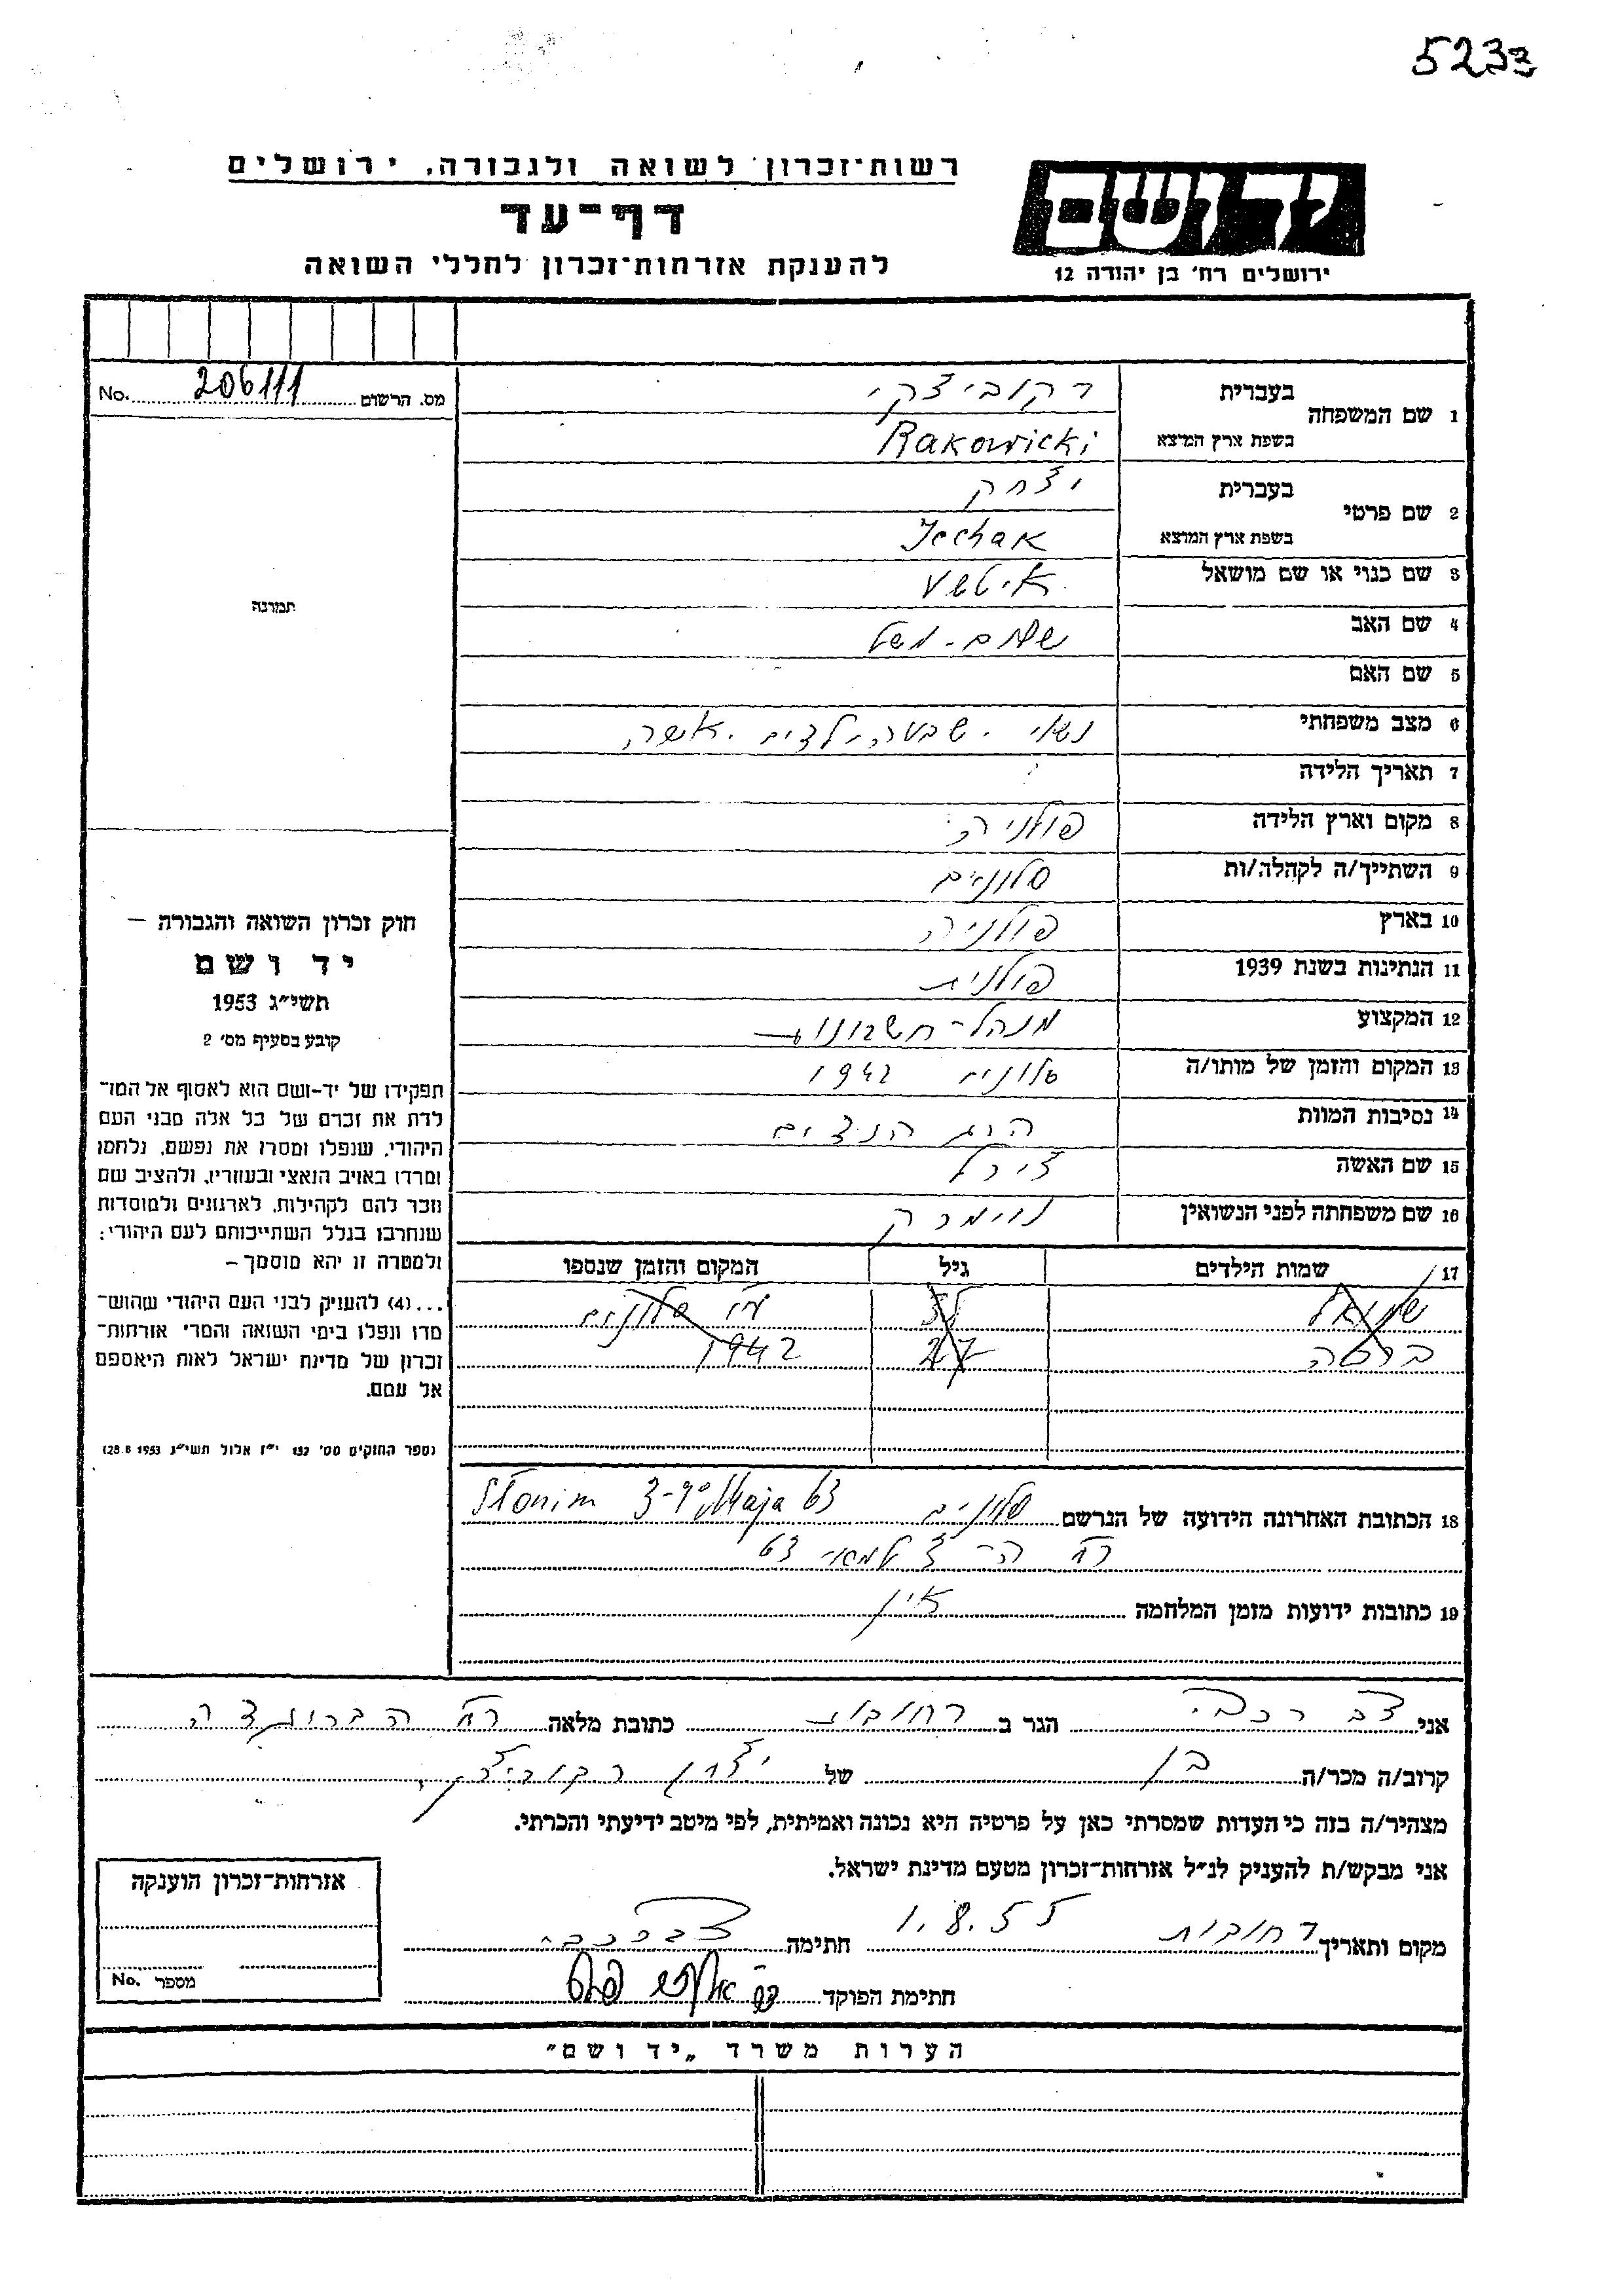 5233
רשות־זכרון לשואה ולגבורה, ירושלים
דף־עד
להענקת אזרחות־זכרון לחללי השואה
יד ושם
ירושלים רח' בן יהודה 12
מס. הרשום 206111 No.
1 שם המשפחה
בעברית רקוביצקי
בשפת ארץ המוצא Rakowicki
2 שם פרטי
בעברית יצחק
בשפת ארץ המוצא Icchak
3 שם כנוי או שם מושאל איטשע
4 שם האב
5 שם האם
6 מצב משפחתי נשוי
7 תאריך הלידה
8 מקום וארץ הלידה פולניה
9 השתייך/ה לקהלה/ות סלונים
10 בארץ פולניה
11 הנתינות בשנת 1939 פולנית
12 המקצוע מנהל-חשבונות
13 המקום והזמן של מותו/ה סלונים 1942
14 נסיבות המוות
15 שם האשה צירל
16 שם משפחתה לפני הנשואין נוימרק
17 שמות הילדים גיל המקום והזמן שנספו
שמואל סלונים
ברטה 27 1942
18 הכתובת האחרונה הידועה של הנרשם סלונים Słonim 3-go Maja 63
רח' ה־3 למאי 63
19 כתובות ידועות מזמן המלחמה אין
תמונה
חוק זכרון השואה והגבורה —
יד ושם
תשי"ג 1953
קובע בסעיף מס' 2
תפקידו של יד-ושם הוא לאסוף אל המו־
לדת את זכרם של כל אלה מבני העם
היהודי, שנפלו ומסרו את נפשם, נלחמו
ומרדו באויב הנאצי ובעוזריו, ולהציב שם
וזכר להם לקהילות, לארגונים ולמוסדות
שנחרבו בגלל השתייכותם לעם היהודי;
ולמטרה זו יהא מוסמך —
...(4) להעניק לבני העם היהודי שהוש־
מדו ונפלו בימי השואה והמרי אזרחות־
זכרון של מדינת ישראל לאות היאספם
אל עמם.
(ספר החוקים מס' 132 י"ז אלול תשי"ג 28.8.1953)
אני צבי הגר ב רחובות כתובת מלאה רח'
קרוב/ה מכר/ה בן של יצחק רקוביצקי
מצהיר/ה בזה כי העדות שמסרתי כאן על פרטיה היא נכונה ואמיתית, לפי מיטב ידיעתי והכרתי.
אני מבקש/ת להעניק לנ"ל אזרחות־זכרון מטעם מדינת ישראל.
מקום ותאריך רחובות 1.8.55 חתימה
חתימת הפוקד
אזרחות־זכרון הוענקה
מספר No.
הערות משרד „יד ושם"